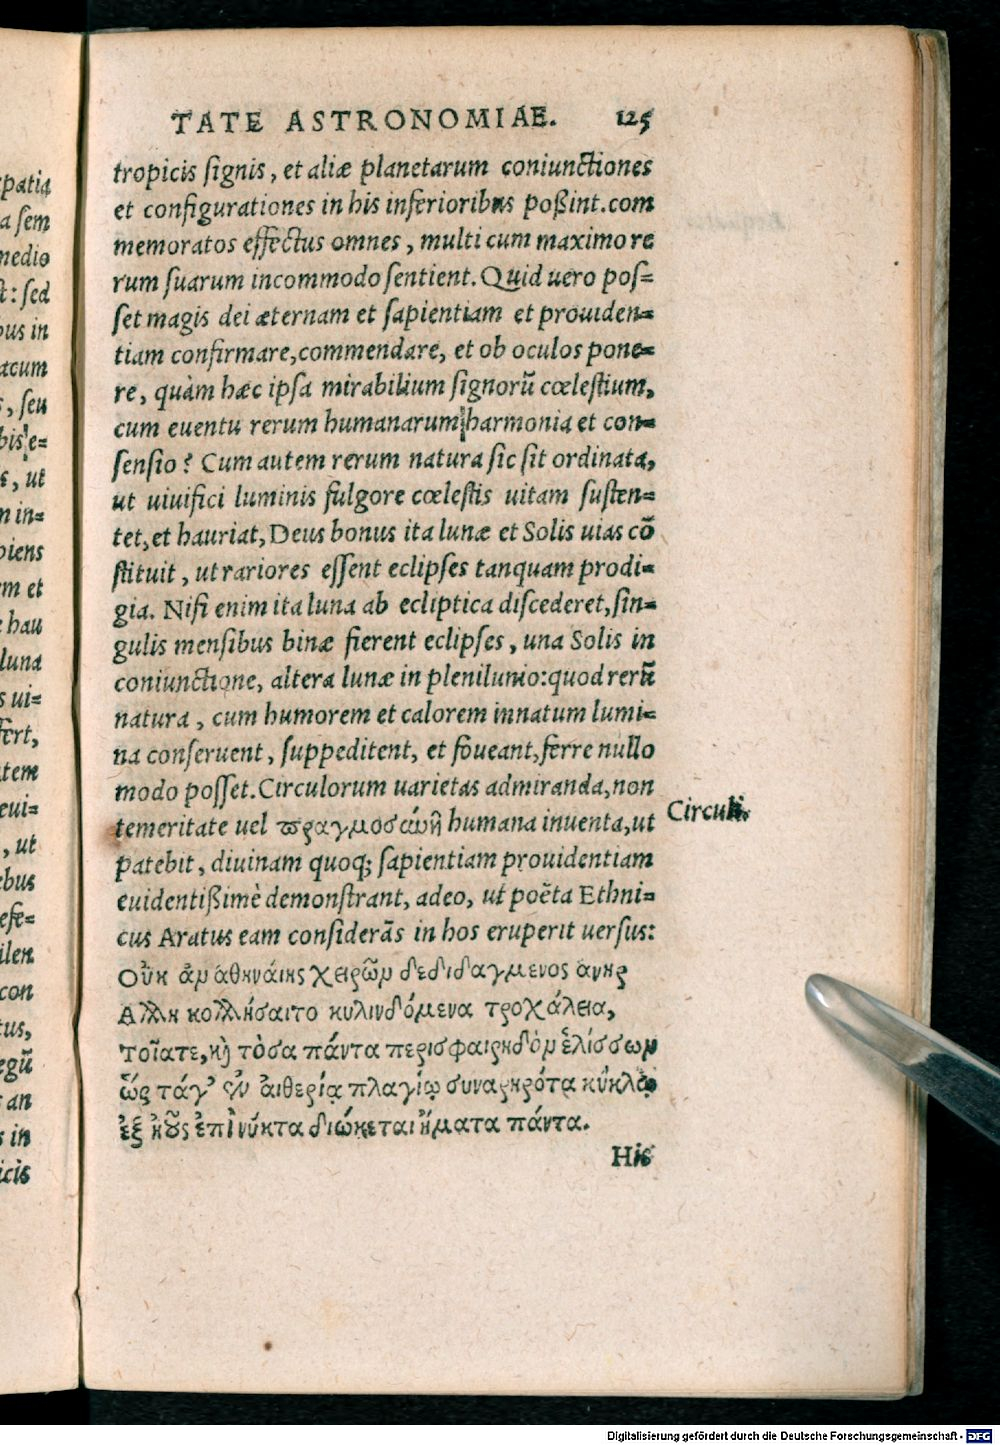 TATE ASTRONOMIAE. 125
tropicis signis, et aliæ planetarum coniunctiones
et configurationes in his inferioribus poßint. com
memoratos effectus omnes, multi cum maximo re
rum suarum incommodo sentient. Quid uero pos=
set magis dei æternam et sapientiam et prouiden=
tiam confirmare, commendare, et ob oculos pone=
re, quàm hæc ipsa mirabilium signorũ cœlestium,
cum euentu rerum humanarum harmonia et con=
sensio? Cum autem rerum natura sic sit ordinata,
ut uiuifici luminis fulgore cœlestis uitam susten=
tet, et hauriat, Deus bonus ita lunæ et Solis uias cõ
stituit, ut rariores essent eclipses tanquam prodi=
gia. Nisi enim ita luna ab ecliptica discederet, sin=
gulis mensibus binæ fierent eclipses, una Solis in
coniunctione, altera lunæ in plenilunio: quod rerũ
natura, cum humorem et calorem innatum lumi=
na conseruent, suppeditent, et foueant, ferre nullo
modo posset. Circulorum uarietas admiranda, non
Circuli.
temeritate uel humana inuenta, ut
patebit, diuinam quoq; sapientiam prouidentiam
euidentißimè demonstrant, adeo, ut poëta Ethni=
cus Aratus eam considerãs in hos eruperit uersus:
Οὐκ ἀν ἀθηνάιης χειρῶν δεδιδαγμενος ανηρ
Αλλη κολλήσαιτο κυλινδόμενα τροχάλεια,
τοῖατε, κὴ τὸσα πάντα περισφαιρηδὸν ἑλίσσων
ὥς τάγ' αἰθερίᾳ πλαγίῳ συναρηρότα κύκλῳ
ἐξ ἠοῦς ἐπὶ νύκτα διώκεται ἤματα πάντα.
His
patia
a sem
medio
t: sed
bus in
acum
s, seu
bis e=
s, ut
n in=
piens
em et
e hau
luna
s ui=
fert,
atem
eui=
, ut
ebus
efe=
ilen
con
tus,
egũ
s an
s in
icis
Digitalisierung gefördert durch die Deutsche Forschungsgemeinschaft - DFG